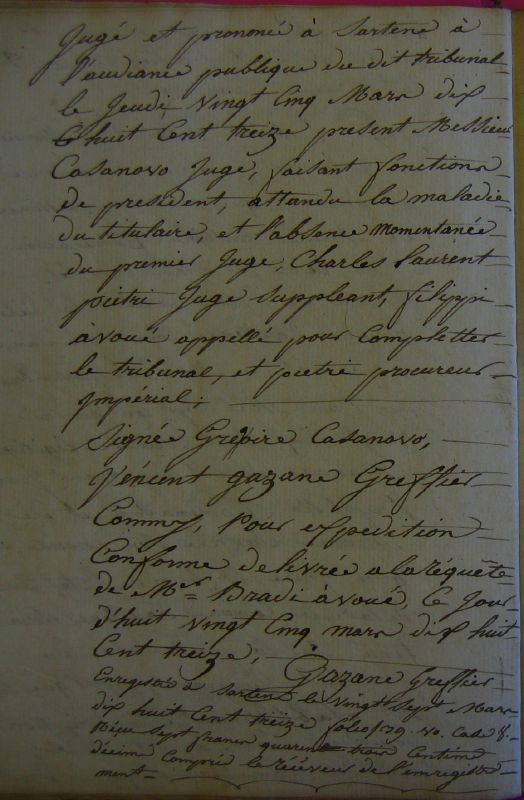 Jugé et prononcé à Sartene à
l'audiance publique du dit tribunal
le Jeudi vingt Cinq Mars dix
huit Cent treize present Messieurs
Casanovo Juge, faisant fonctions
de president, attandu la maladie
du titulaire, et l'absance momentanée
du premier Juge, Charles Laurent
pietri Juge Suppleant, filippi
avoué appellé pour Completter
le tribunal, et pietri procureur
Impérial;
Signée Gregoire Casanovo,
Vencent Gazane Greffier
Commis, Pour expedition
Conforme delivrée a la réquête
de Me Bradi àvoué, Ce Jour
d'huit vingt Cinq mars dix huit
Cent treize, Gazane Greffier
Enregistré à Sartene le vingt Sept Mars
dix huit Cent treize folio 179. vo. Case 8.
Réçu Sept francs quarante trois Centime
décime Compris le réceveur de l'enregistre
ment